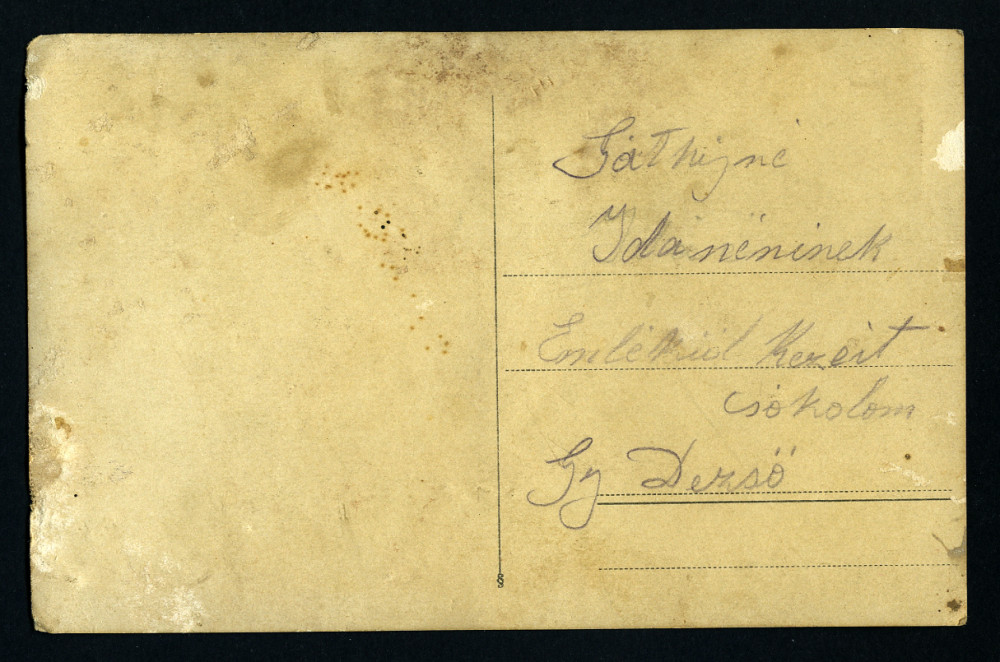 Gáthyné
Ida néninek
Emlékül Kezeit
csókolom
Gy Dezsö